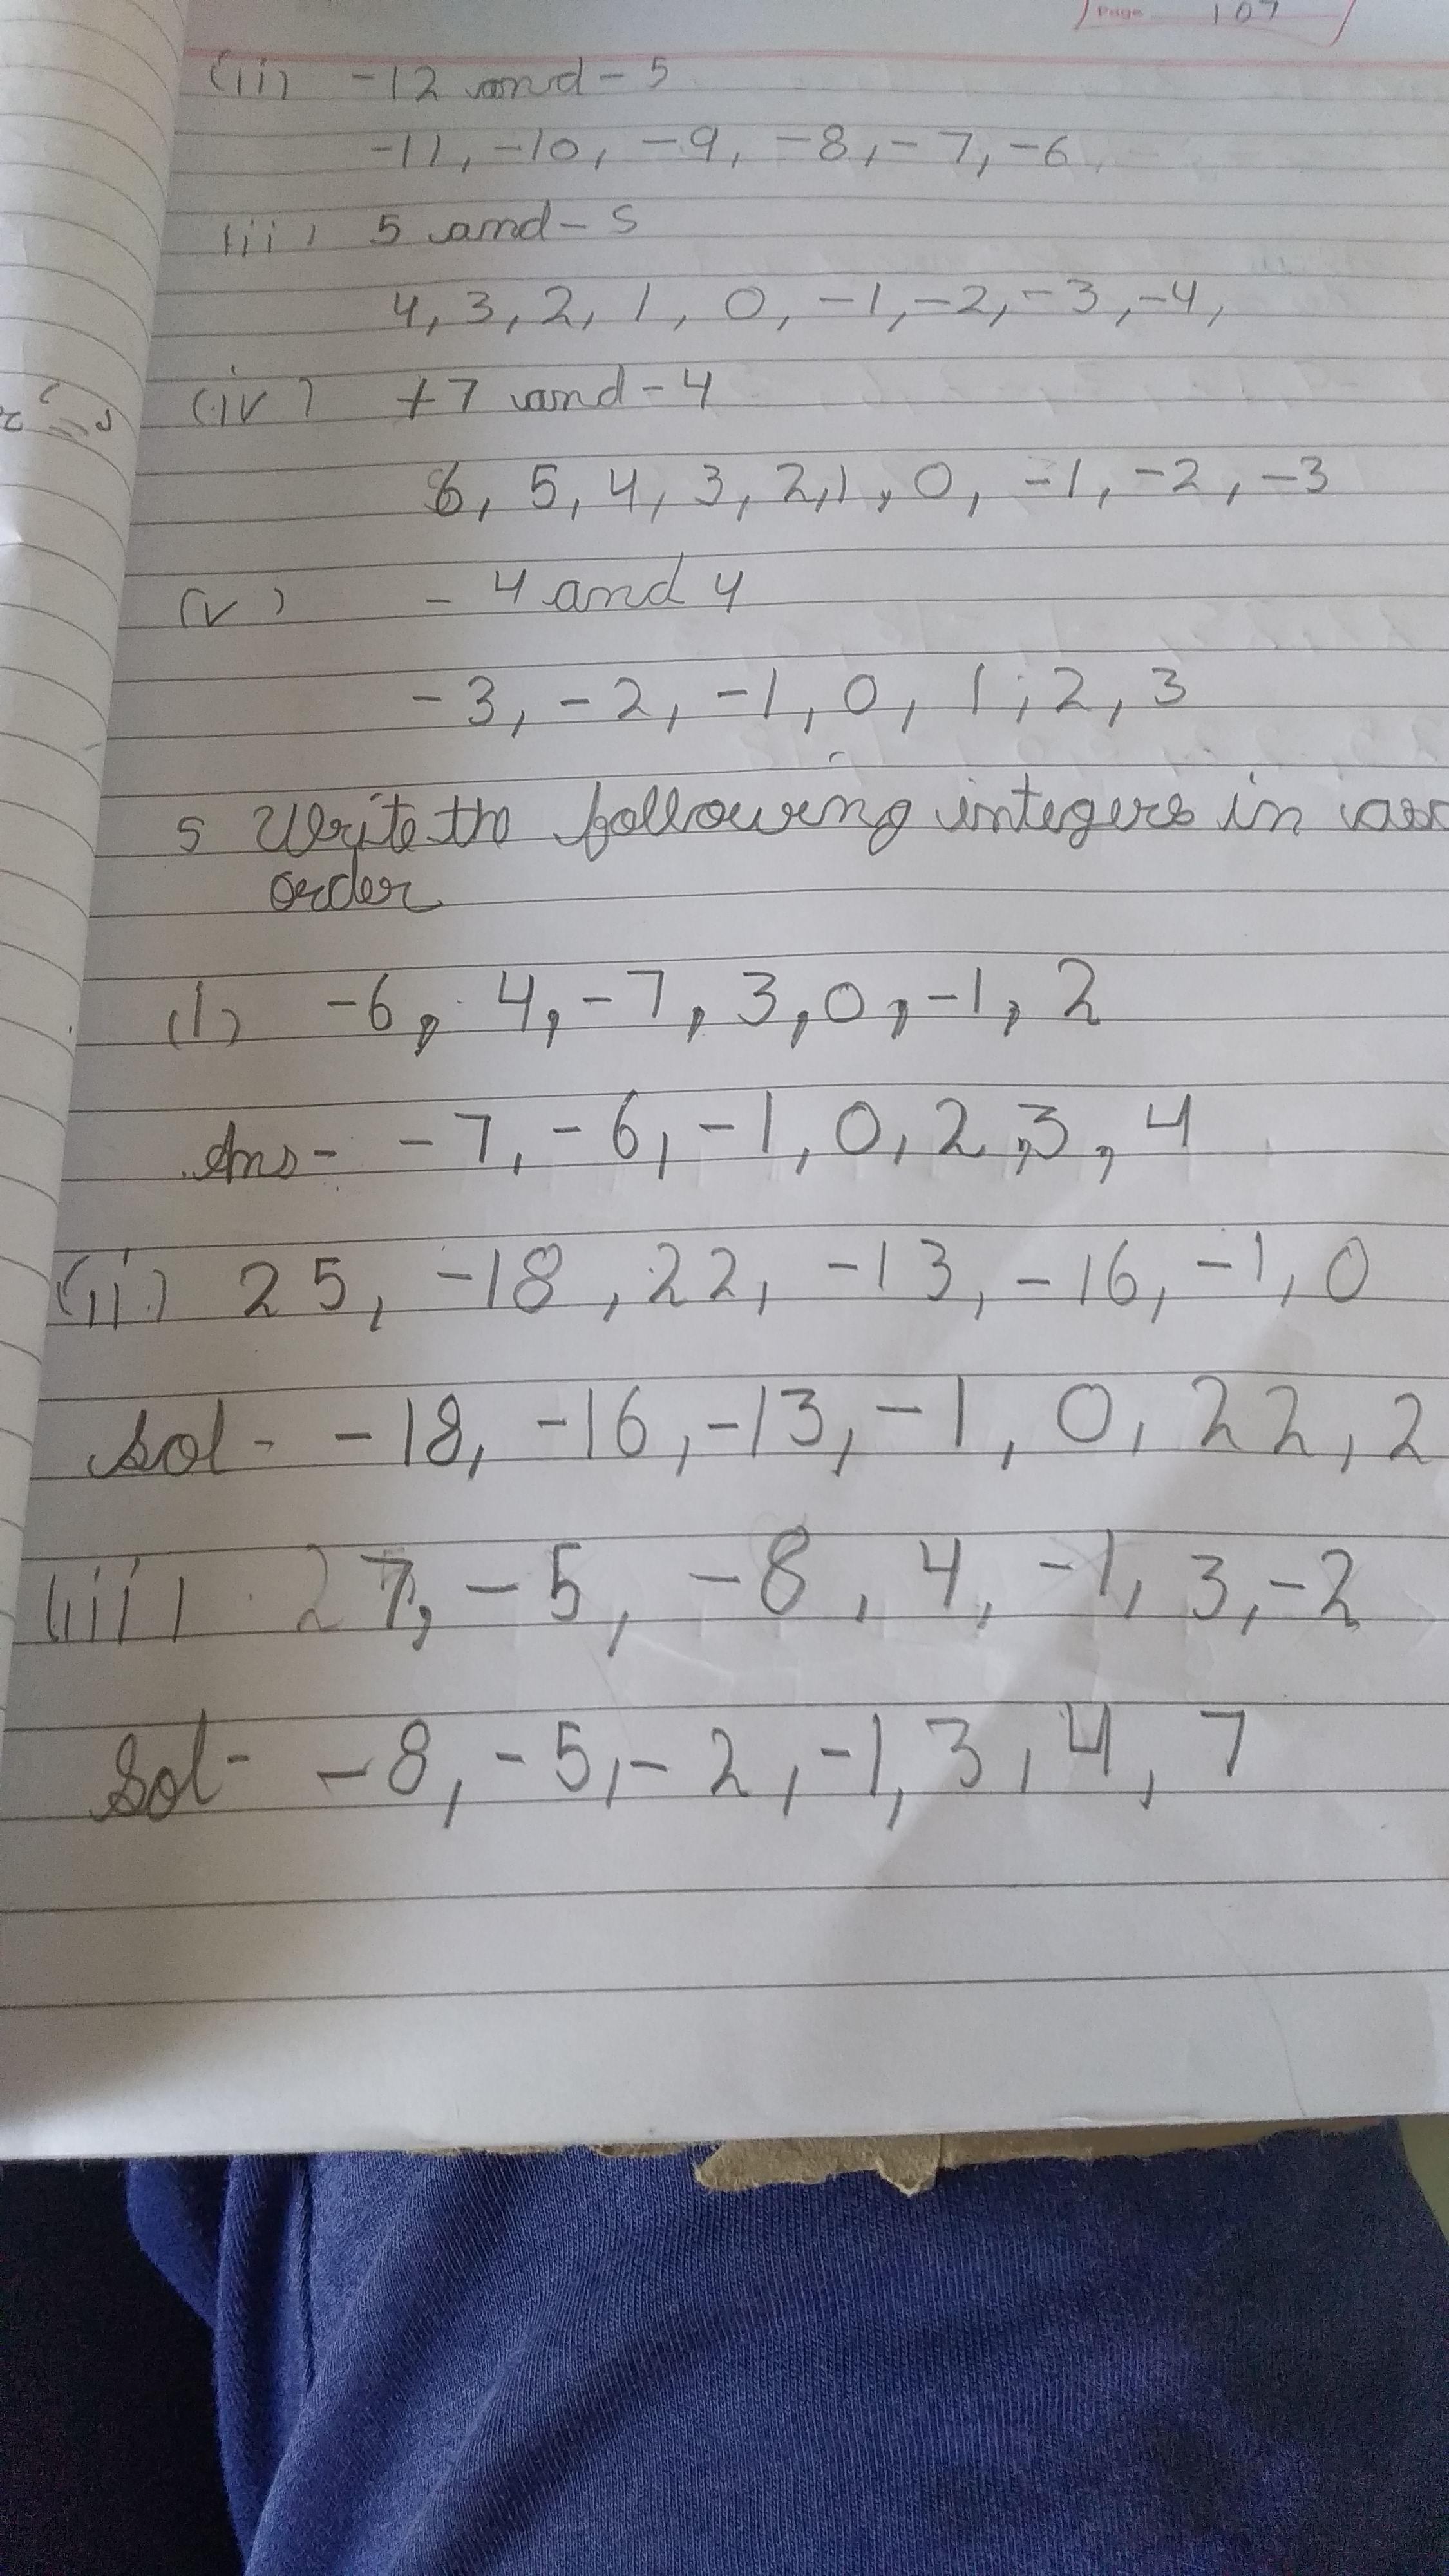 Page 107
(ii) -12 and -5
-11, -10, -9, -8, -7, -6
iii) 5 and -5
4, 3, 2, 1, 0, -1, -2, -3, -4,
(iv) +7 and -4
6, 5, 4, 3, 2, 1, 0, -1, -2, -3
(v) -4 and 4
-3, -2, -1, 0, 1, 2, 3
5 Write the following integers in
order
(i) -6, 4, -7, 3, 0, -1, 2
Ans - -7, -6, -1, 0, 2, 3, 4
(ii) 25, -18, 22, -13, -16, -1, 0
Sol - -18, -16, -13, -1, 0, 22, 2
(iii) 7, -5, -8, 4, -1, 3, -2
Sol - -8, -5, -2, -1, 3, 4, 7